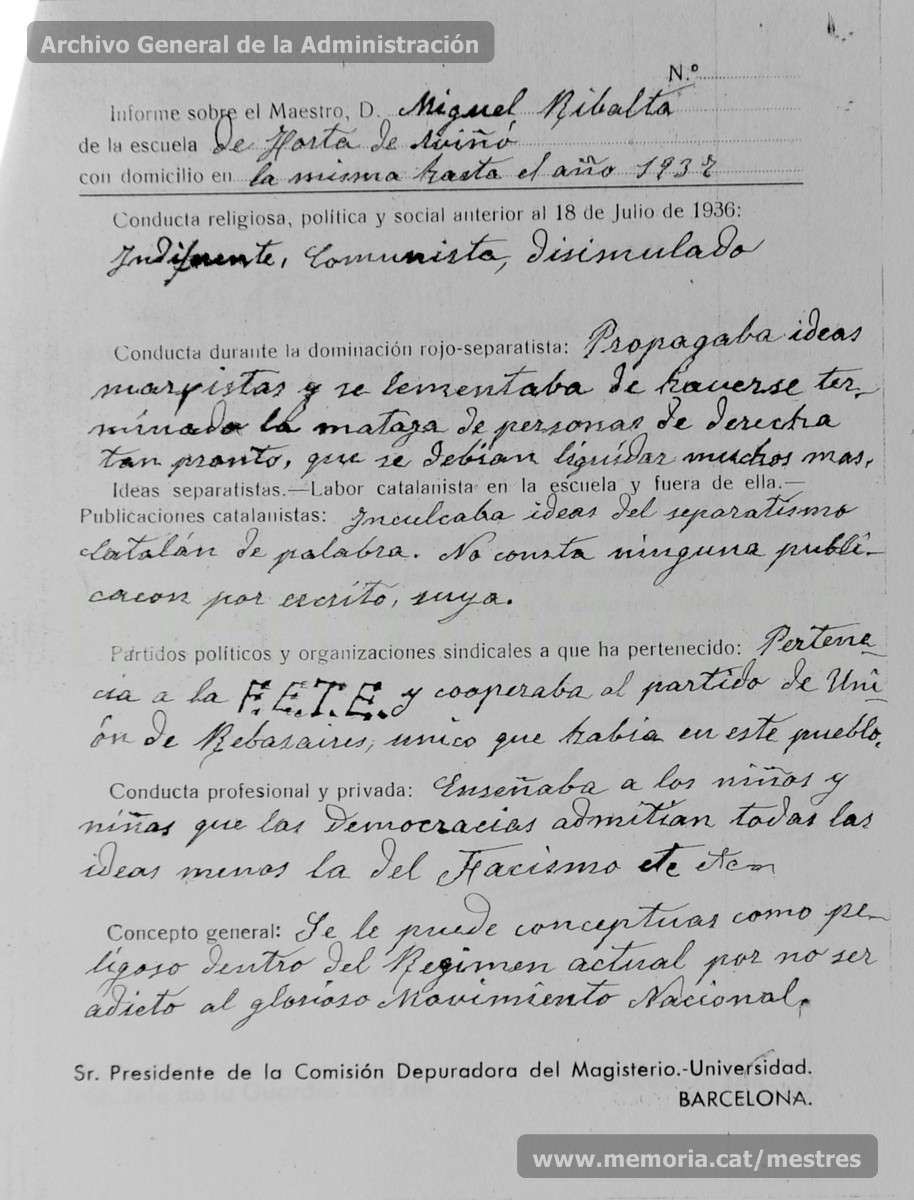 Archivo General de la Administración
N.º
Informe sobre el Maestro, D. Miguel Ribalta
de la escuela de Horta de Aviñó
con domicilio en la misma hasta el año 1937
Conducta religiosa, política y social anterior al 18 de Julio de 1936:
Indiferente, Comunista, disimulado
Conducta durante la dominación rojo-separatista: Propagaba ideas
marxistas y se lementaba de haverse ter-
minado la mataza de personas de derecha
tan pronto, que se debian liquidar muchos mas.
Ideas separatistas.—Labor catalanista en la escuela y fuera de ella.—
Publicaciones catalanistas: Inculcaba ideas del separatismo
Catalán de palabra. No consta ninguna publi-
cacon por escrito, suya.
Partidos políticos y organizaciones sindicales a que ha pertenecido: Pertene-
cia a la F.E.T.E. y cooperaba al partido de Uni-
ón de Rebasaires, unico que habia en este pueblo.
Conducta profesional y privada: Enseñaba a los niños y
niñas que las Democracias admitían todas las
ideas menos la del Facismo etc etc
Concepto general: Se le puede conceptuar como pe-
ligoso dentro del Regimen actual por no ser
adicto al glorioso Movimiento Nacional.
Sr. Presidente de la Comisión Depuradora del Magisterio.-Universidad.
BARCELONA.
www.memoria.cat/mestres